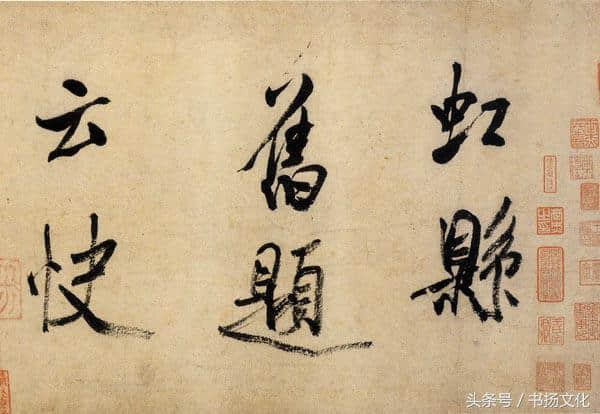 虹縣
舊題
云快
头条号／书扬文化